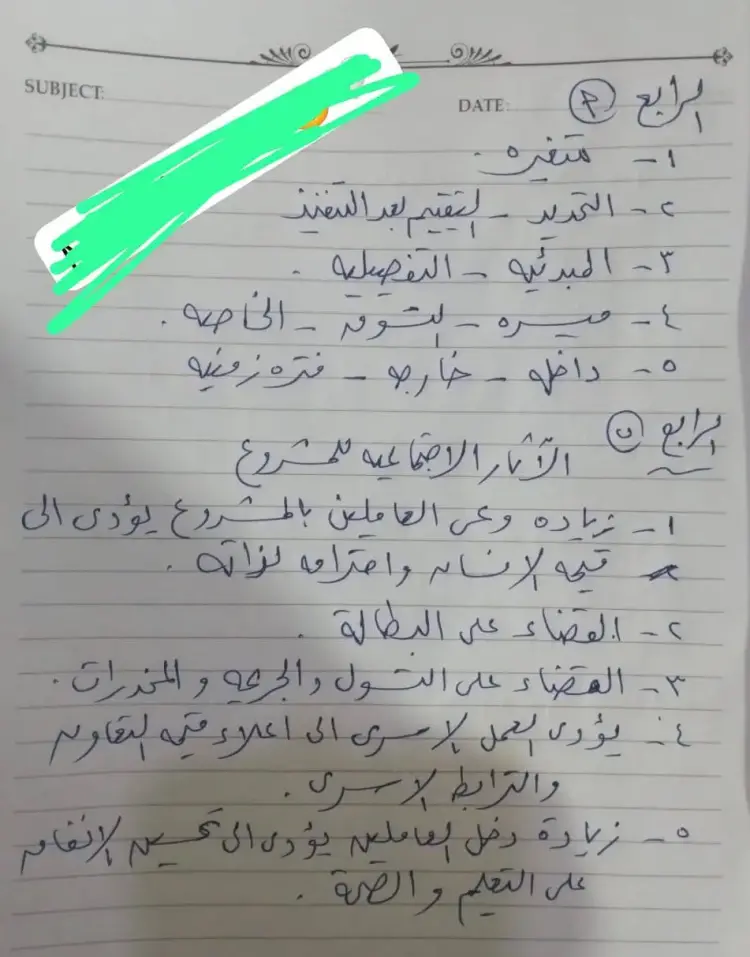 SUBJECT:
DATE:
الرابع (P)
١- متغيره .
٢- التحديد - التقييم بعد التنفيذ
٣- المبدئيه - التفصيليه .
٤- ميسره - التسويقيه - الخاصه .
٥- داخله - خارجه - فتره زمنيه
الرابع (ن)
الآثار الاجتماعيه للمشروع
١- زياده وعى العاملين بالمشروع يؤدى الى
قيمه الانسان واحترامه لذاته .
٢- القضاء على البطالة .
٣- القضاء على التسول والجريمه والمخدرات .
٤- يؤدى العمل الاسرى الى اعلاء قيمه التعاون
والترابط الاسرى .
٥- زيادة دخل العاملين يؤدى الى تحسين الانفاق
على التعليم والصحة .